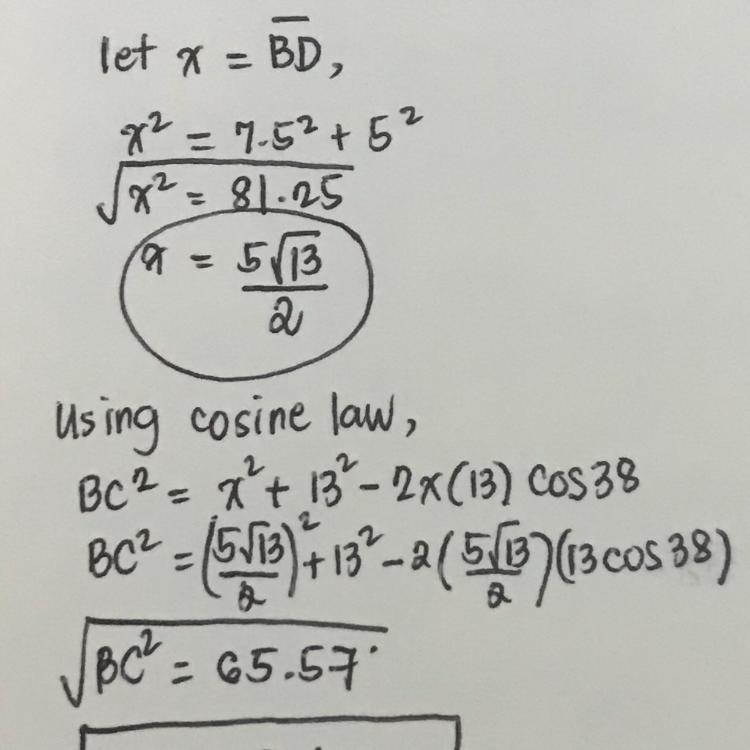 let x = B̅D̅,
x² = 7.5² + 5²
√x² = 81.25
x = 5√13/2
Using cosine law,
BC² = x² + 13² - 2x(13) cos38
BC² = (5√13/2)² + 13² - 2(5√13/2)(13cos38)
√BC² = 65.57